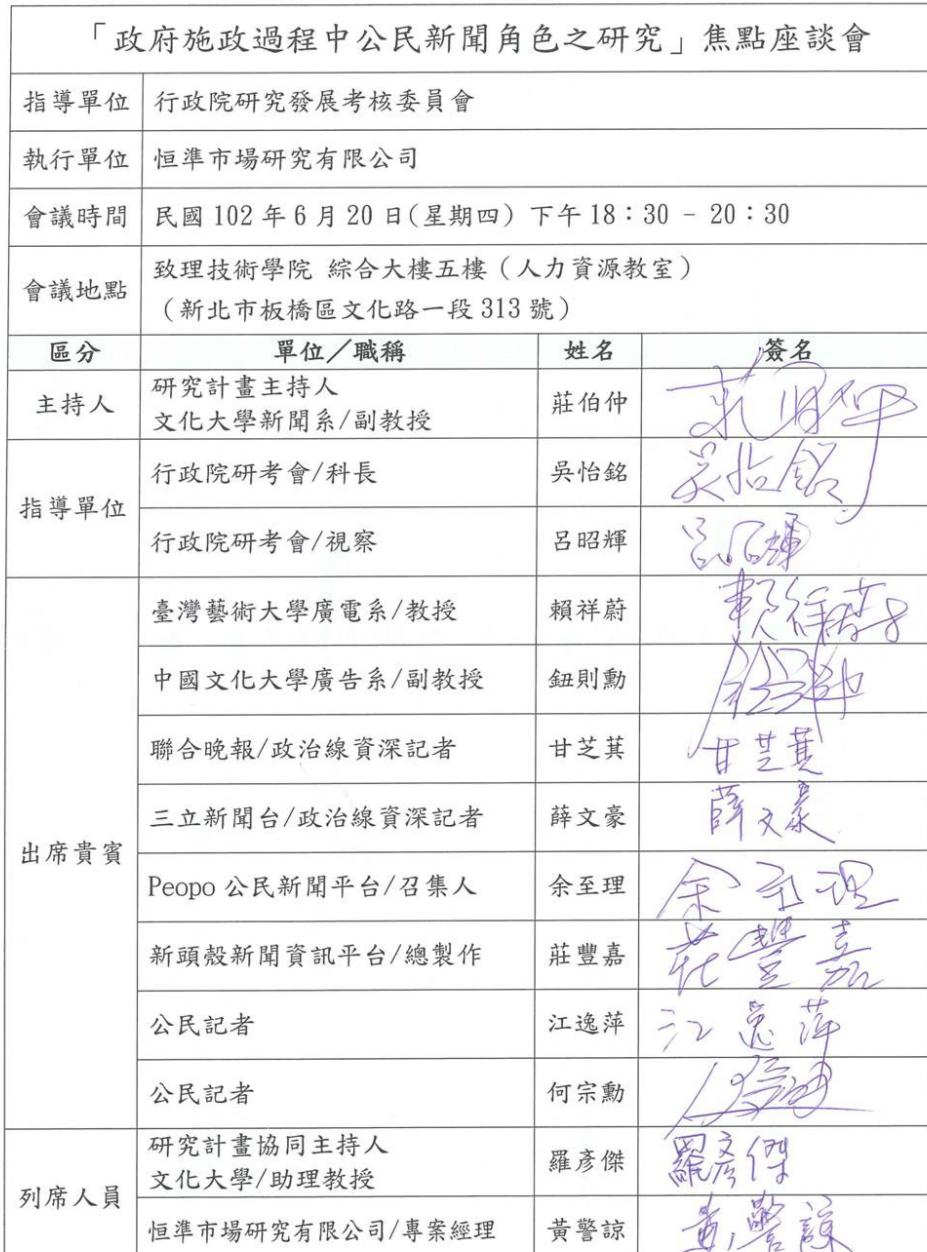 「政府施政過程中公民新聞角色之研究」焦點座談會
指導單位 行政院研究發展考核委員會
執行單位 恒準市場研究有限公司
會議時間 民國 102 年 6 月 20 日(星期四) 下午 18：30 – 20：30
會議地點 致理技術學院 綜合大樓五樓（人力資源教室）
（新北市板橋區文化路一段 313 號）
區分 單位／職稱 姓名 簽名
主持人 研究計畫主持人
文化大學新聞系/副教授 莊伯仲
指導單位 行政院研考會/科長 吳怡銘 吳怡銘
行政院研考會/視察 呂昭輝 呂昭輝
出席貴賓 臺灣藝術大學廣電系/教授 賴祥蔚 賴祥蔚
中國文化大學廣告系/副教授 鈕則勳
聯合晚報/政治線資深記者 甘芝萁 甘芝萁
三立新聞台/政治線資深記者 薛文豪 薛文豪
Peopo 公民新聞平台/召集人 余至理 余至理
新頭殼新聞資訊平台/總製作 莊豐嘉 莊豐嘉
公民記者 江逸萍 江逸萍
公民記者 何宗勳
列席人員 研究計畫協同主持人
文化大學/助理教授 羅彥傑 羅彥傑
恒準市場研究有限公司/專案經理 黃警諒 黃警諒